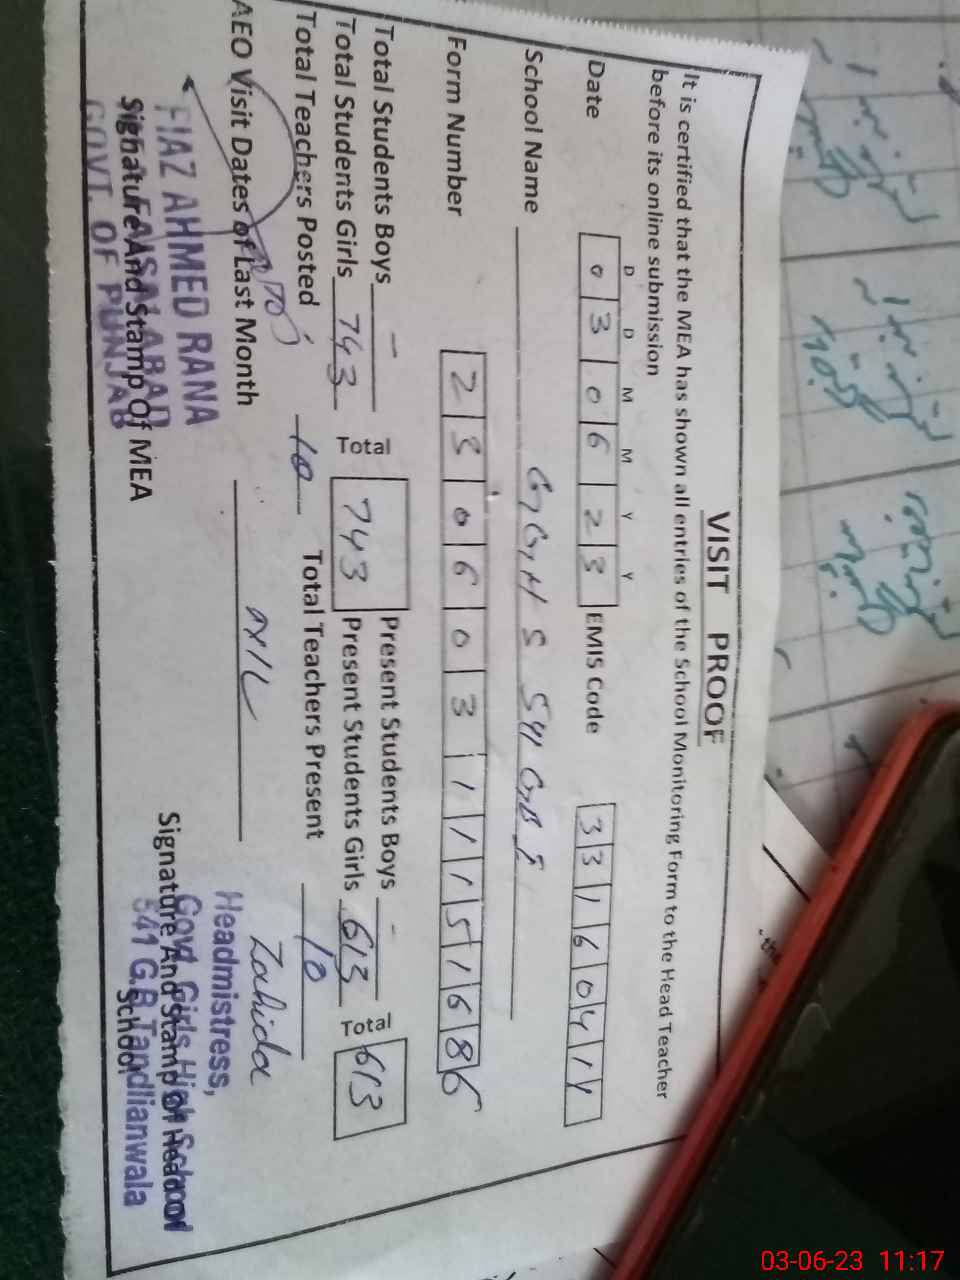 VISIT PROOF
It is certified that the MEA has shown all entries of the School Monitoring Form to the Head Teacher
before its online submission
D D M M Y Y
Date 0 3 0 6 2 3 EMIS Code 3 3 1 6 0 4 1 1
School Name G G H S 541 GB
Form Number 2 3 0 6 0 3 1 1 1 5 1 6 8 6
Total Students Boys - Present Students Boys -
Total Students Girls 743 Total 743 Present Students Girls 613 Total 613
Total Teachers Posted 10 Total Teachers Present 10
AEO Visit Dates of Last Month Zahida
FIAZ AHMED RANA Headmistress,
FAISALABAD Govt. Girls High School
Signature And Stamp Of MEA Signature And Stamp Of Head of School
GOVT. OF PUNJAB 541 G.B Tandlianwala
the
03-06-23 11:17